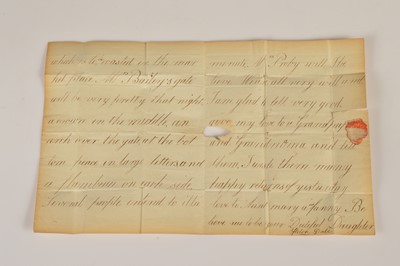 which is to be roasted in the mar
ket place Mr Bailey's gate
will be very pretty that night
a crown on the middle an
arch over the gate at the bot
tom peace in large letters and
a flambeau on each side
Several people intend to illu
minate Mr Boby will He
have them all very well and
I am glad to tell very good
give my love to Grandpapa
and Grandmama and tell
them I wish them many
happy returns of yesterday
love to Aunt mary & fanny Be
lieve me to be your Dutiful Daughter